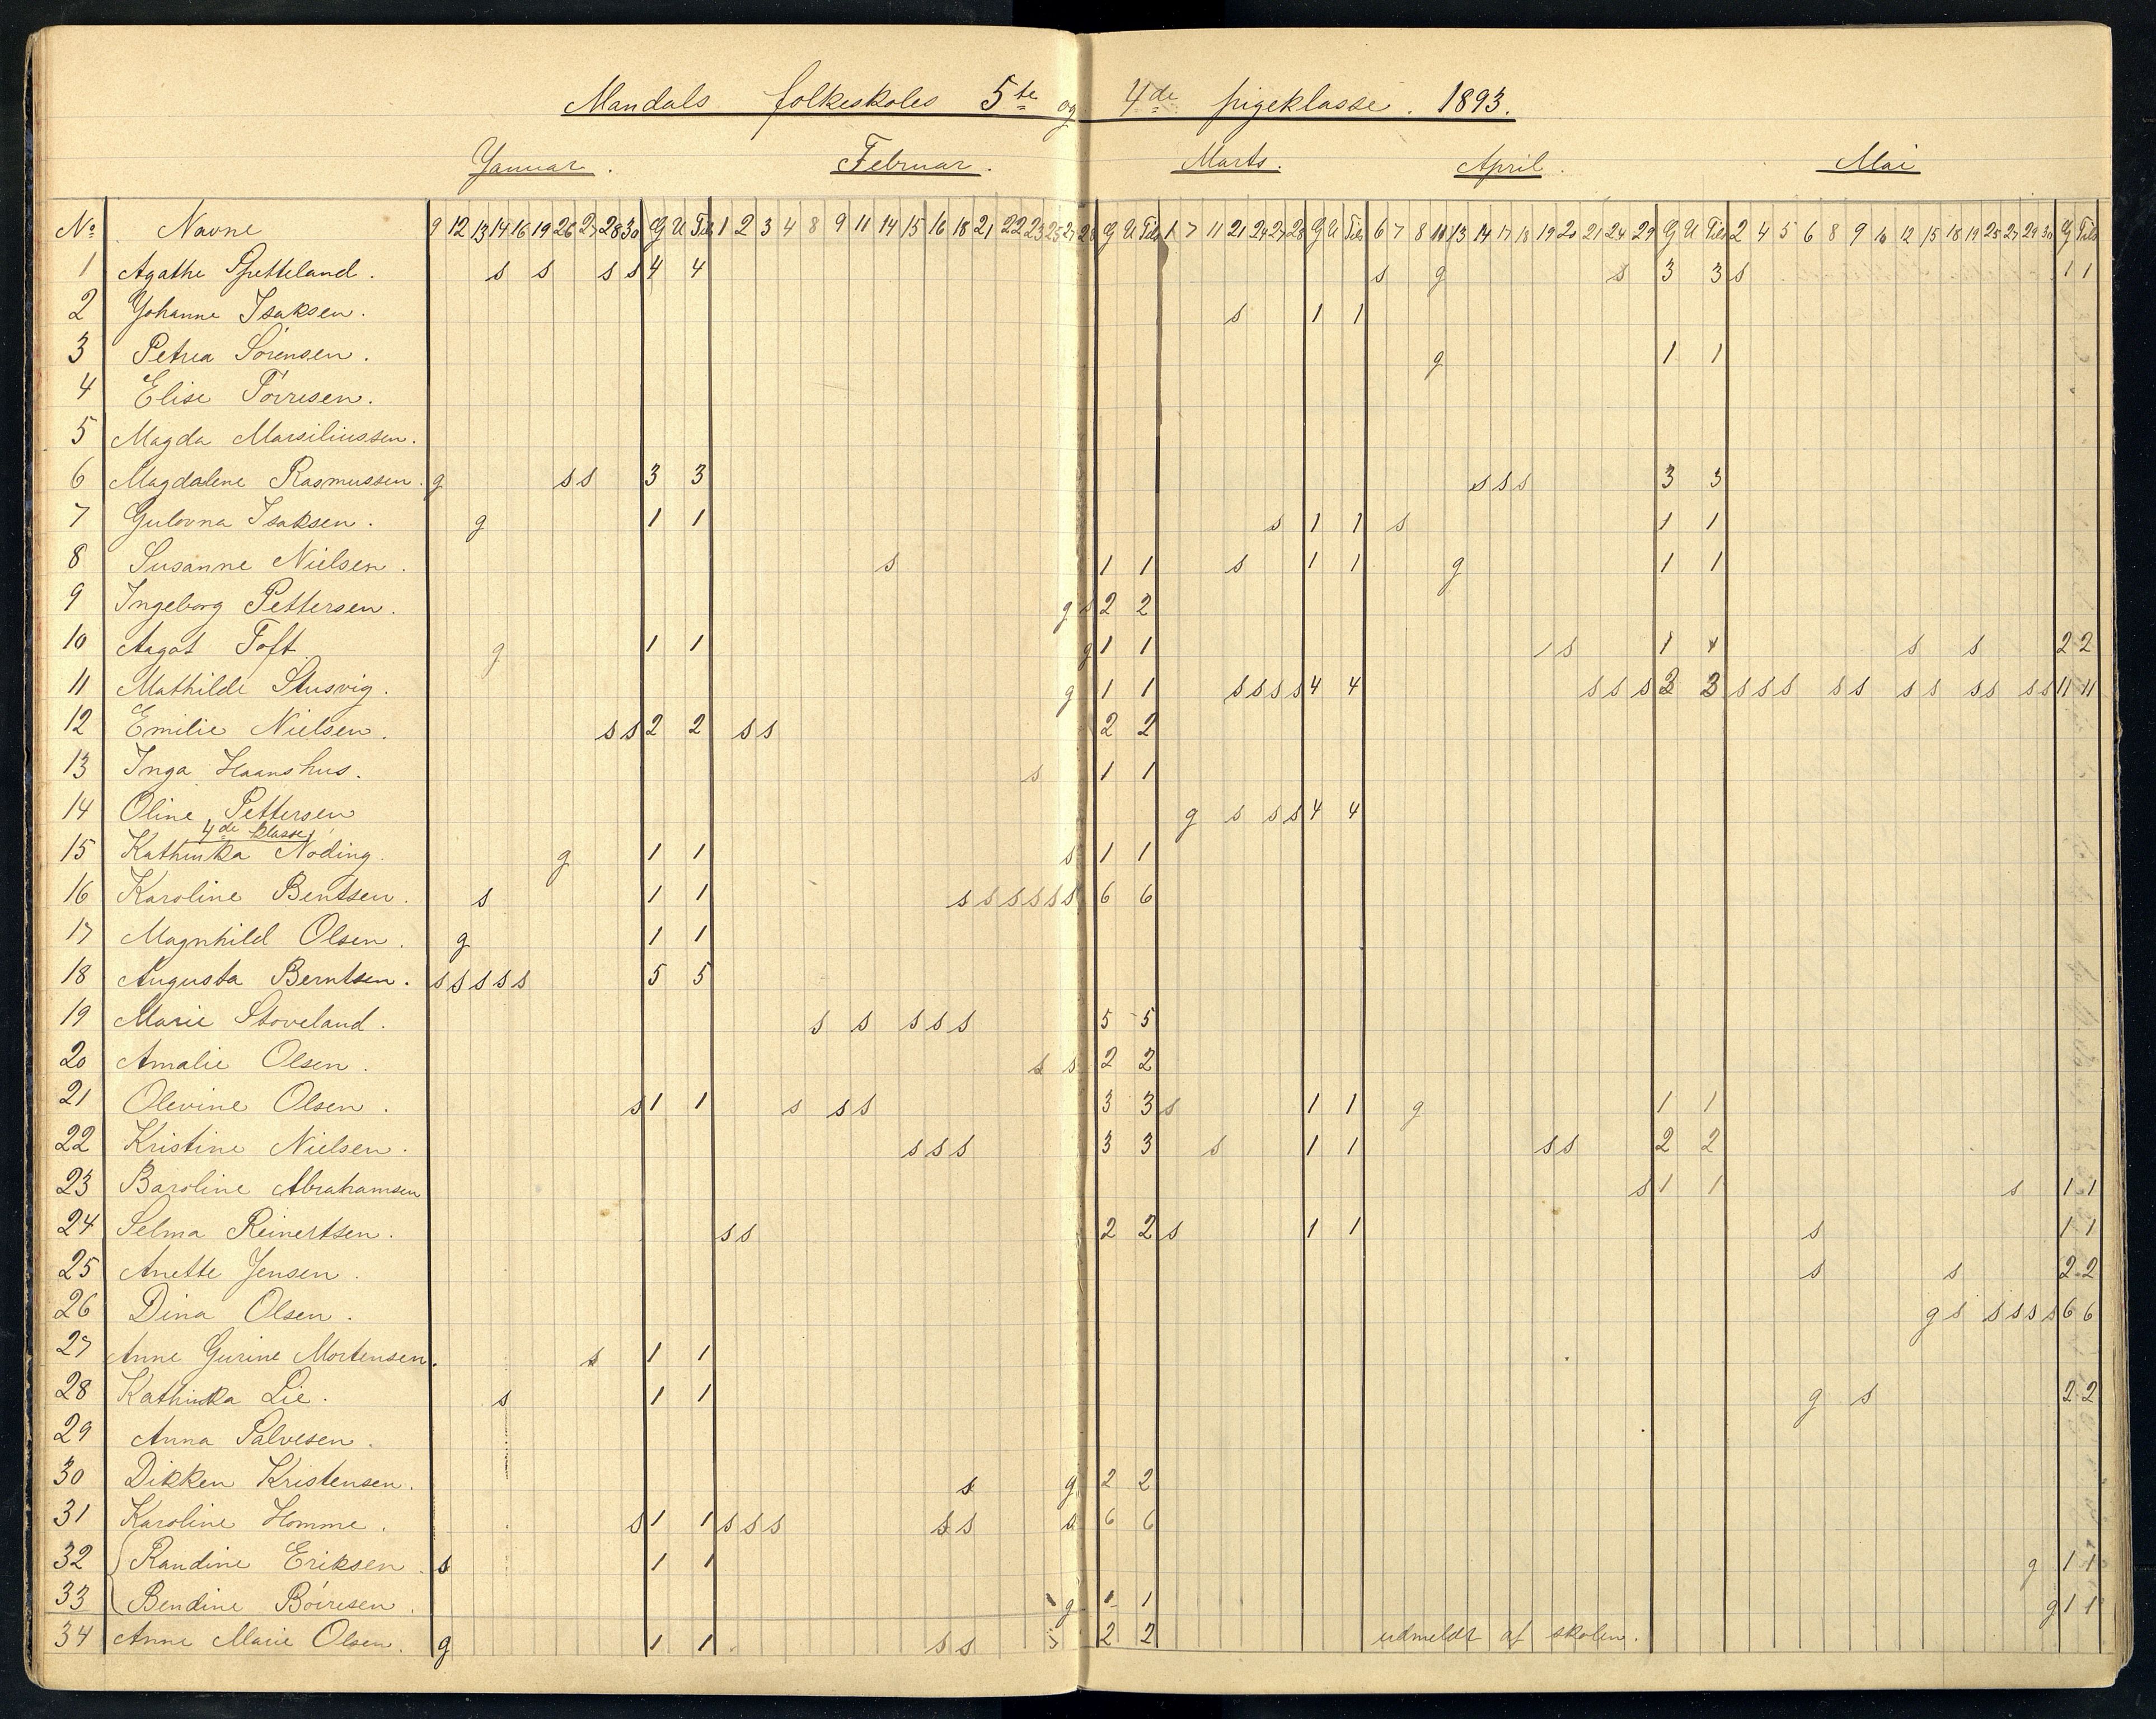 Mandals folkeskoles 5te og 4de pigeklasse. 1893.
Januar. Februar. Marts. April. Mai
No Navne 9 12 13 14 16 19 26 27 28 30 G U Tils 1 2 3 4 8 9 11 14 15 16 18 21 22 23 25 27 28 G U Tils 1 7 11 21 24 27 28 G U Tils 6 7 8 11 13 14 17 18 19 20 21 24 29 G U Tils 2 4 5 6 8 9 10 12 15 18 19 25 27 29 30 G Tils
1 Agathe Spetteland. s s s s 4 4 s g s 3 3 s 1 1
2 Johanne Isaksen. s 1 1
3 Petrea Sörensen. g 1 1
4 Elise Törresen.
5 Magda Marsiliussen.
6 Magdalene Rasmussen. g s s 3 3 s s s 3 3
7 Gulovna Isaksen. g 1 1 s 1 1 s 1 1
8 Susanne Nielsen. s 1 1 s 1 1 g 1 1
9 Ingeborg Pettersen. g s 2 2
10 Aagot Toft g 1 1 g 1 1 s 1 s s 2 2
11 Mathilde Stusvig. g 1 1 s s s s 4 4 s s s 3 3 s s s s s s s s s s s 11 11
12 Emilie Nielsen. s s 2 2 s s 2 2
13 Inga Haanshus. s 1 1
14 Oline Pettersen g s s s 4 4
4de klasse
15 Kathinka Nöding. g 1 1 s 1 1
16 Karoline Bentsen. s 1 1 s s s s s s 6 6
17 Magnhild Olsen. g 1 1
18 Augusta Berntsen. s s s s s 5 5
19 Marie Stoveland. s s s s s 5 5
20 Amalie Olsen. s s 2 2
21 Olevine Olsen. s 1 1 s s s 3 3 s 1 1 g 1 1
22 Kristine Nielsen. s s s 3 3 s 1 1 s s 2 2
23 Baroline Abrahamsen s 1 1 s 1 1
24 Selma Reinertsen. s s 2 2 s 1 1 s 1 1
25 Anette Jensen. s s 2 2
26 Dina Olsen. g s s s s s 6 6
27 Anne Gurine Mortensen. s 1 1
28 Kathinka Lie. s 1 1 g s 2 2
29 Anna Salvesen.
30 Dikken Kristensen. s g 2 2
31 Karoline Homme. s 1 1 s s s s s s 6 6
32 Randine Eriksen s 1 1 g 1 1
33 Bendine Böiresen. g 1 1 g 1 1
34 Anne Marie Olsen. g 1 1 s s 2 2 udmeldt af skolen.